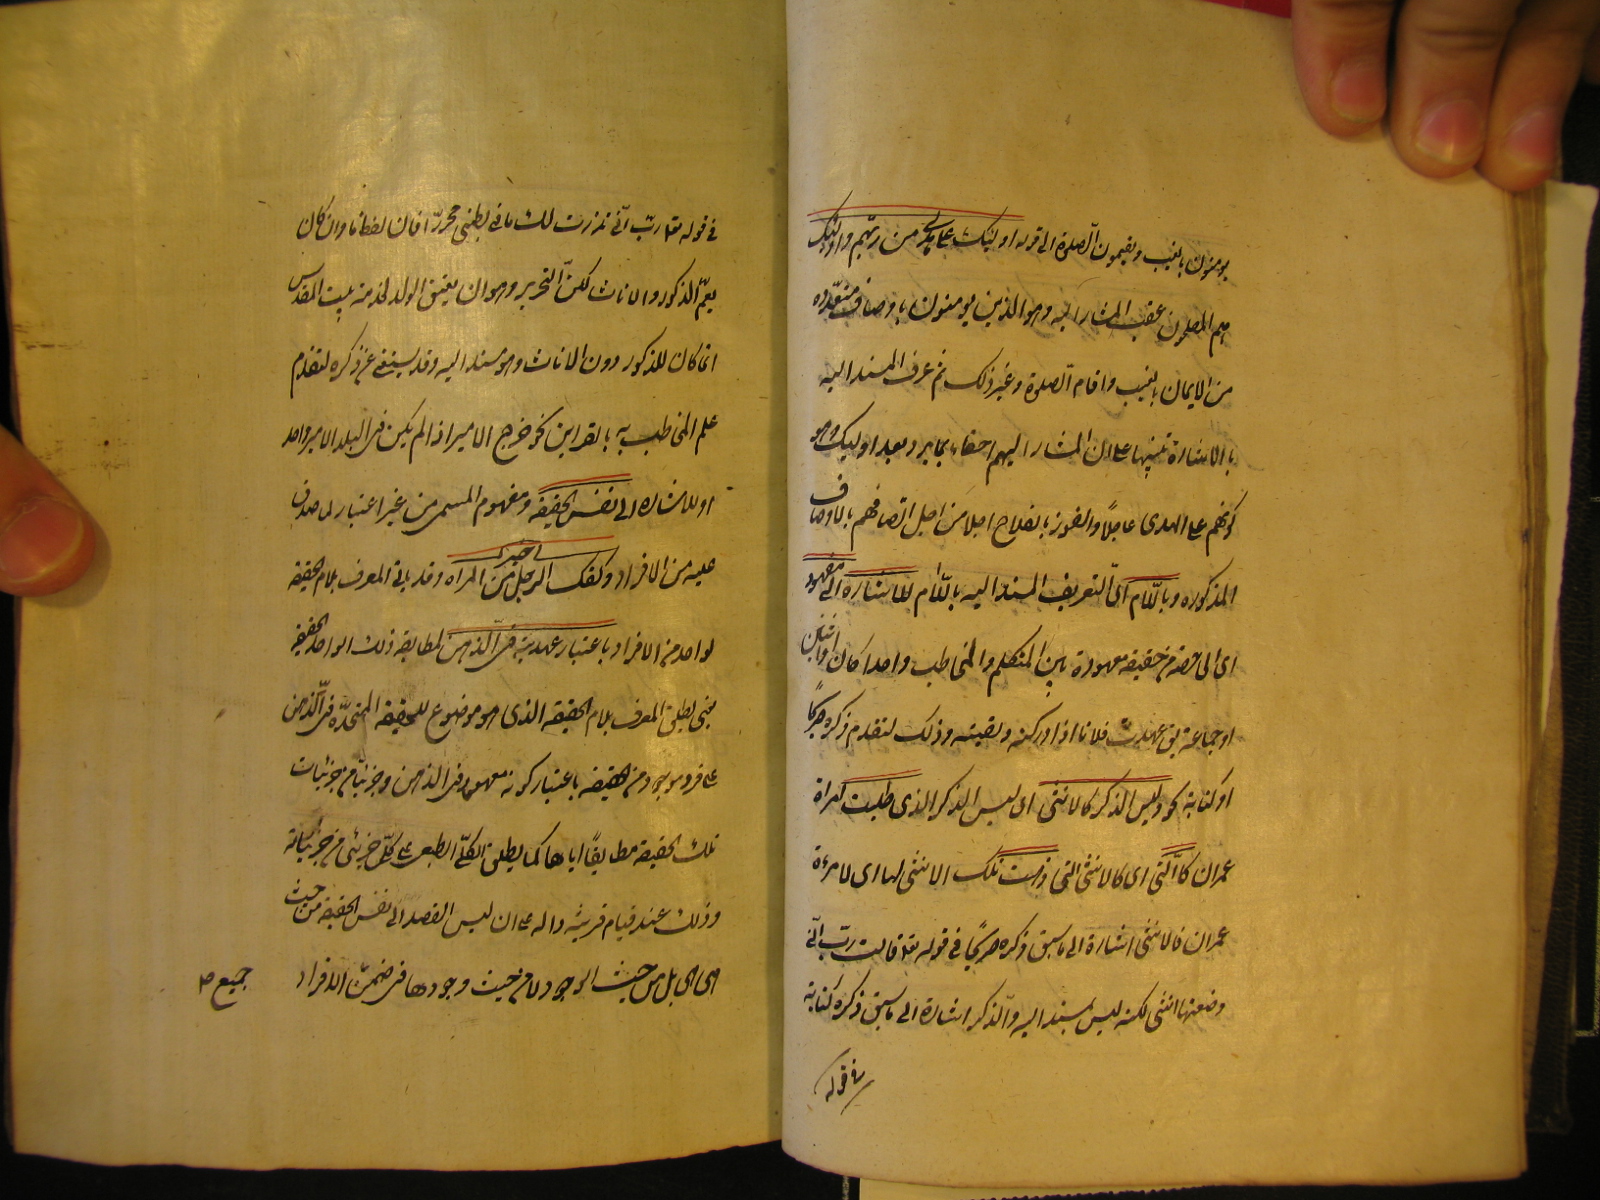 يومنون بالغيب ويقيمون الصلوة الى قوله اوليك على هدى من ربهم واوليك
هم المفلحون عقب المشار اليه وهو الذين يومنون باوصاف متعدده
من الايمان بالغيب واقام الصلوة وغير ذلك ثم عرف المسند اليه
بالاشارة تنبيها على ان المشار اليهم احقاء بما يرد بعد اوليك وهو
كونهم على الهدى عاجلا والفوز بالفلاح اجلا من اجل اتصافهم بالاوصاف
المذكوره وباللام اى التعريف المسند اليه باللام للاشارة الى معهود
اى الى حصة من حقيقة معهودة بين المتكلم والمخاطب واحدا كان او اثنين
او جماعة يق عهدت فلانا اذا ادركته ولقيته وذلك لتقدم ذكره صريحا
او كناية نحو وليس الذكر كالانثى اى ليس الذكر الذى طلبت امراة
عمران كالتى اى كالانثى التى وهبت تلك الانثى لها اى لامرءة
عمران فالانثى اشارة الى ما سبق ذكره صريحا في قوله تعا قالت رب انى
وضعتها انثى لكنه ليس بمسند اليه والذكر اشارة الى ما سبق ذكره كناية
فى قوله
في قوله تعا رب انى نذرت لك ما في بطنى محررا فان لفظ ما وان كان
يعم الذكور والاناث لكن التحرير وهو ان يعتق الولد لخدمة بيت المقدس
انما كان للذكور دون الاناث وهو مسند اليه وقد يستغنى عن ذكره لتقدم
علم المخاطب به بالقراين نحو خرج الامير اذا لم يكن فى البلد الا امير واحد
او للاشاره الى نفس الحقيقه ومفهوم المسمى من غير اعتبار لما صدق
عليه من الافراد وكقولك الرجل خير من المراة وقد ياتى المعرف بلام الحقيقة
لواحد من الافراد باعتبار عهديته فى الذهن لمطابقة ذلك الواحد الحقيقة
يعنى يطلق المعرف بلام الحقيقه الذى هو موضوع للحقيقه المتحده فى الذهن
على فرد موجود من الحقيقه باعتبار كونه معهودا فى الذهن وجزئيا من جزئيات
تلك الحقيقة مطابقا اياها كما يطلق الكلى الطبعى على كل جزئى من جزئياته
وذلك عند قيام قرينة داله على ان ليس القصد الى نفس الحقيقة من حيث
هى هى بل من حيث الوجود لا من حيث وجودها فى ضمن الافراد
جميع